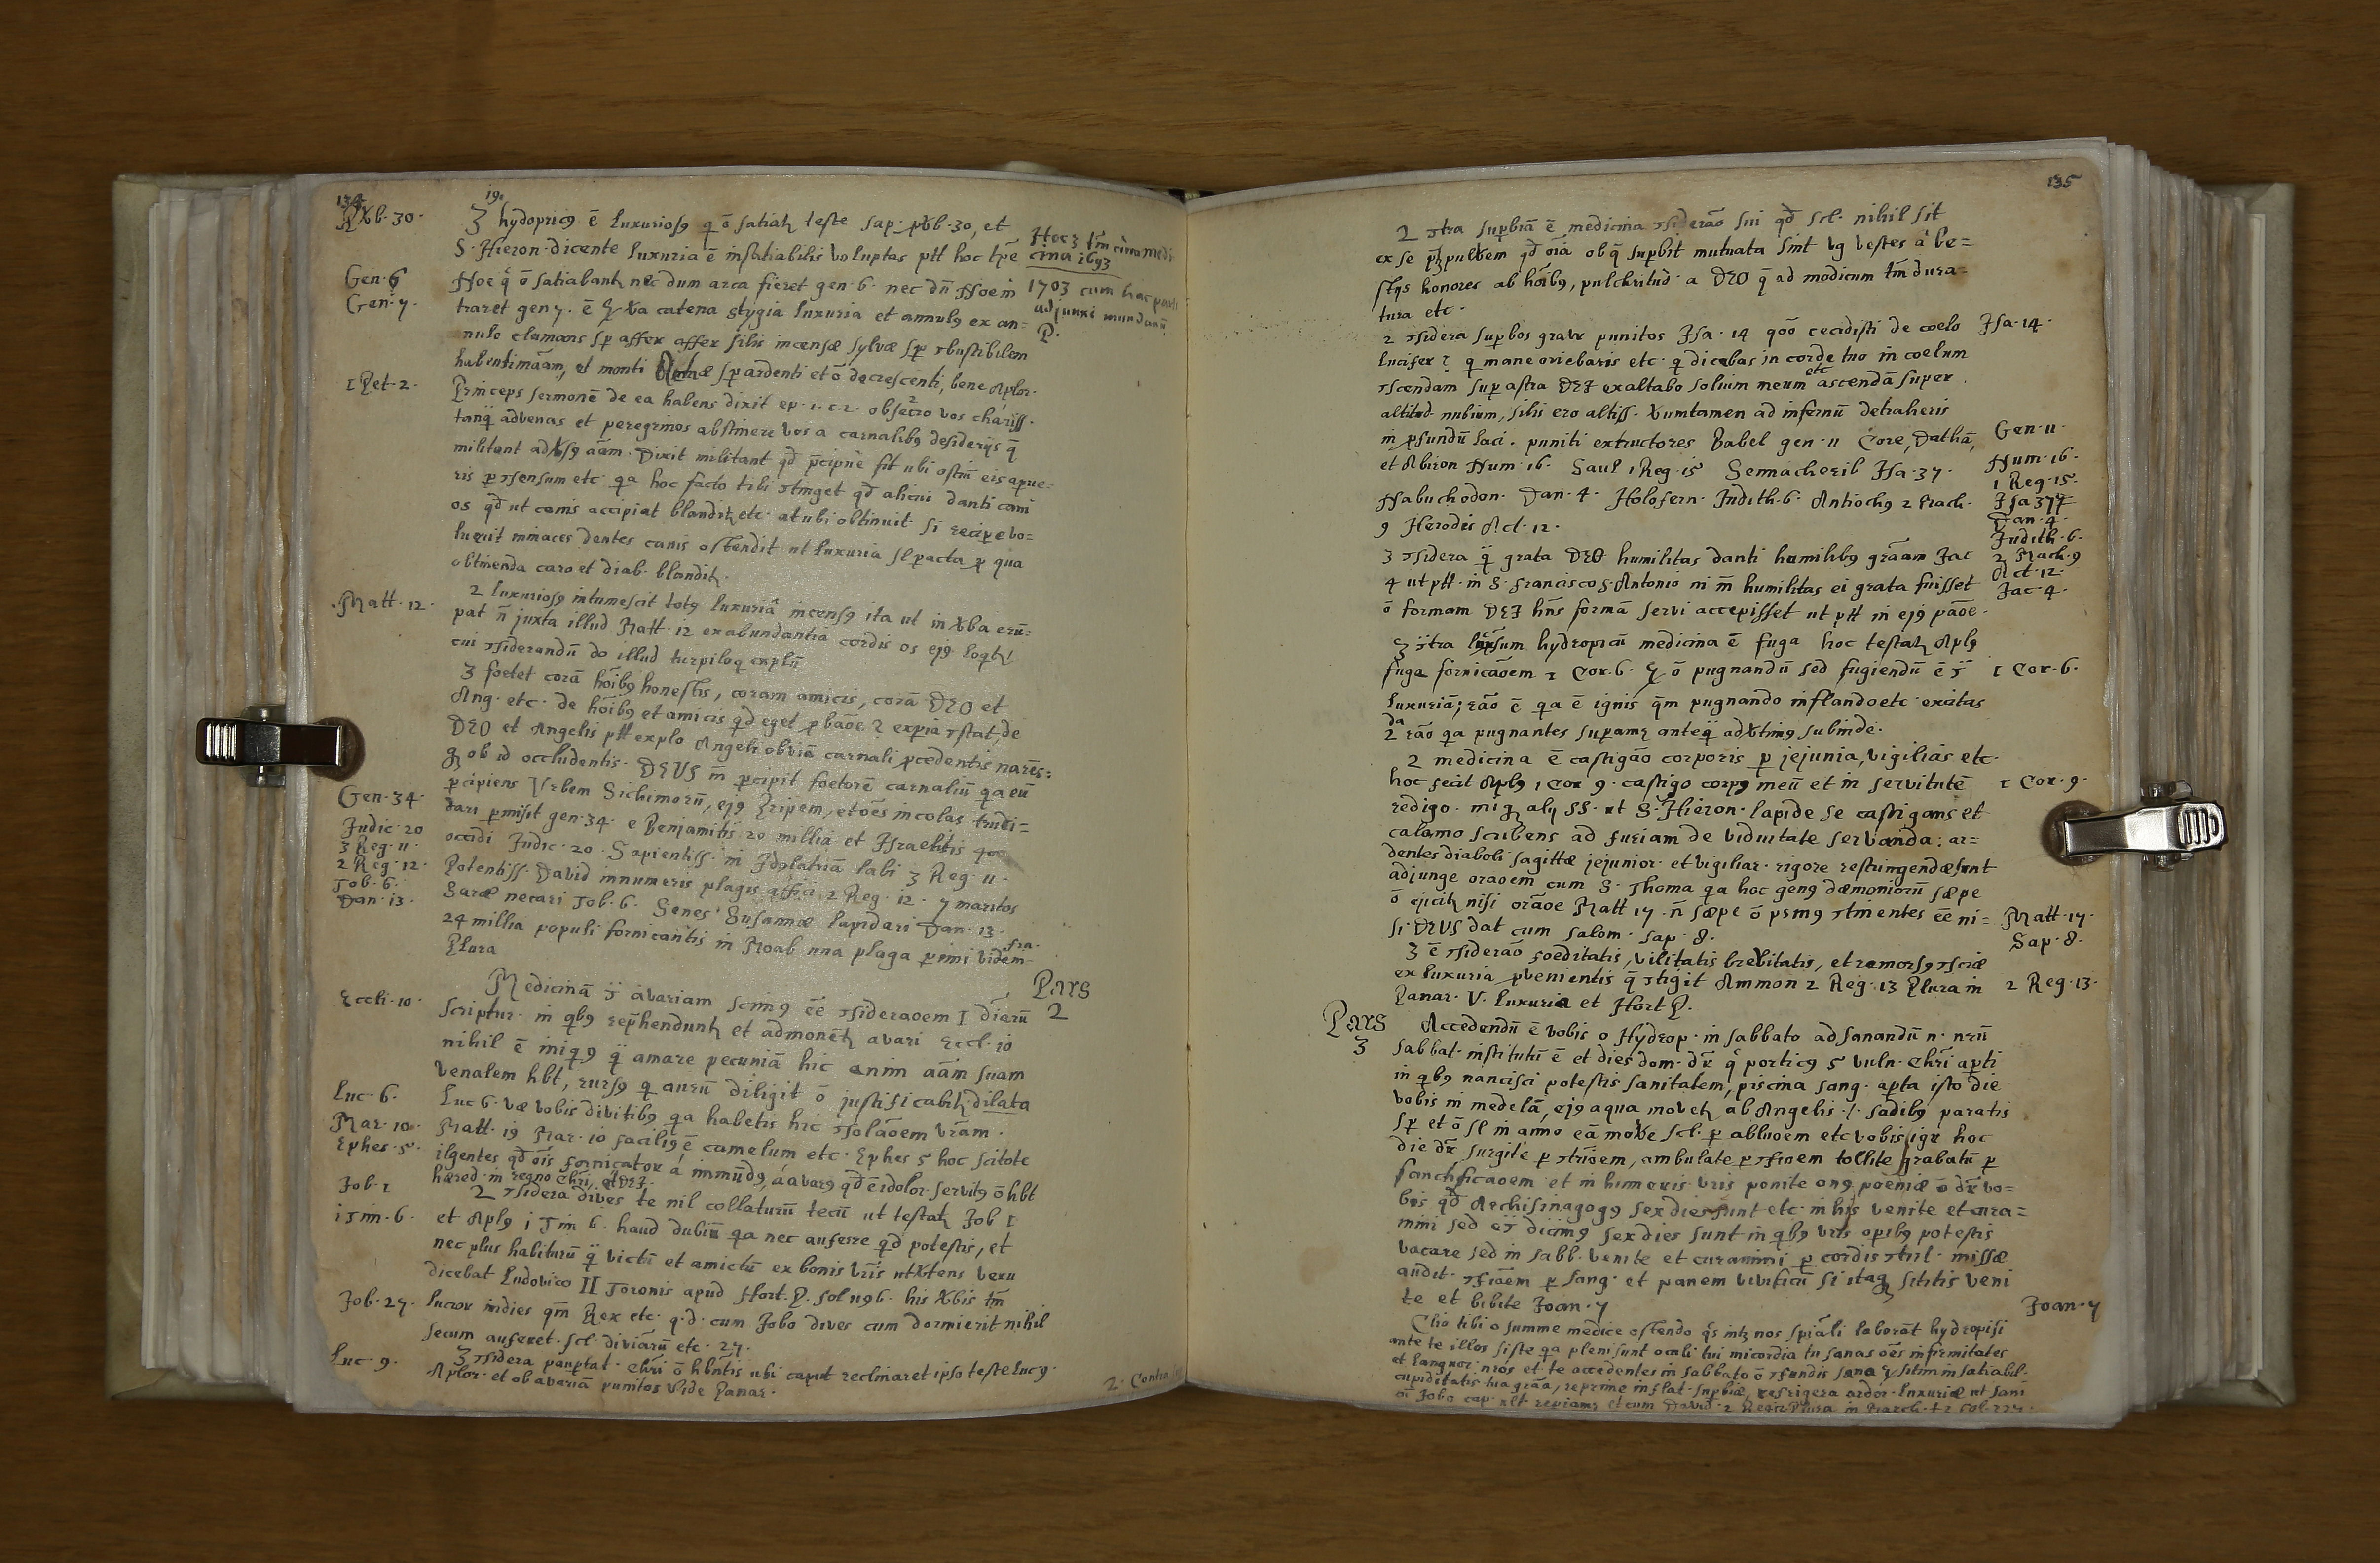 134
19.
PXb. 30.
3 hydopric9 ē luxurios9 q ō satiatz teste sap. pvb. 30, et
S. Hieron. dicente luxuria ē insatiabilis voluptas ptt hoc tpē
Hoc 3 tm circa medi
cina ib9z
Gen. 6
Noe q̄ ō satiabantz nec dum arca fieret gen. 6. nec dn̄ Noe in
1703 cum hac
Gen. 7.
traret gen 7. ē vba catena stygia luxuria et annul9 ex an=
adjunxi mundanū
P.
nulo clamans sp affer affer silis incensæ sylvæ sp
habenti mām, et monti Ætnæ sp ardenti et ō decrescenti, bene Aplor.
1 Pet. 2.
Princeps sermonē de ea habens dixit ep. 1. c. 2. obsecro vos chariss.
tanq̄ advenas et peregrinos abstinere vos a carnalib9 desiderijs q̄
militant advs9 āam. Dixit militant qd p̄cipuè fit ubi ostiū eis apue=
ris p nsensum etc. qa hoc facto tibi ntinget qd alicui danti cani
os qd ut canis accipiat blanditz etc. at ubi obtinuit si recipe vo=
luerit minaces dentes canis ostendit ut luxuria sl pacta p qua
obtinenda caro et diab. blanditz.
Matt. 12.
2 luxurios9 intumescit tot9 luxuriâ incens9 ita ut in vba erū=
pat n̄ juxta illud Matt. 12 ex abundantia cordis os ej9 loqtz!
cui nsiderandū do illud turpiloq explū
3 foetet corā hoib9 honestis, coram amicis, corā DEO et
Ang. etc. de hoib9 et amicis qd eget pbaōe? expia nstat, de
DEO et Angelis ptt explo Angeli obviā carnali pcedentis nares=
qz ob id occludentis. DEUS m̄ pcipit foetorē carnaliū qa eū
Gen. 34.
pcipiens Urbem Sichimorū, ej9 Pripem, et oēs incolas truci=
dari pmisit gen. 34. e Benjamitis 20 millia et Israelitis 400
Judic. 20
occidi Judic. 20. Sapientiss. in Idolatriā labi 3 Reg. 11.
3 Reg. 11.
2 Reg. 12.
Potentiss. David innumeris plagis affici 2 Reg. 12. 7 maritos
Tob. 6.
Saræ necari Tob. 6. Senes Susannæ lapidari Dan. 13.
Dan. 13.
24 millia populi fornicantis in Moab una plaga pimi
Plura
Medicinā
avariam scim9 ēe nsideraoem 1 diarū
Pars
2
Eccli. 10.
scriptur. in qb9 rep̄henduntz et admonētz avari Eccl. 10
nihil ē iniq9 q̄ amare pecuniā hic enim āam suam
venalem hbt, rurs9 q aurū diligit ō justificabitz dilata
Luc. 6.
Luc 6. væ vobis divitib9 qa habetis hic nsolāoem vram.
Mar. 10.
Matt. 19 Mar. 10 facili9 ē camelum etc. Ephes 5 hoc scitote
Ephes. 5.
ilgentes qd ōis fornicator á immūd9, á avar9 qd ē idolor. servit9 ō hbt
hæred. in regno Chri, et DEI.
Job. 1
2 nsidera dives te nil collaturū tecū ut testatz Job 1
1 Tim. 6.
et Apl9 1 Tim 6. haud dubiū qa nec auferre qd potestis, et
nec plus habiturū q̄ victū et amictū ex bonis vris
dicebat Ludovico II Toronis apud Hort. P. fol 1196. his vbis tm̄
Job. 27.
lucror indies qm̄ Rex etc. q. d. cum Jobo dives cum dormierit nihil
secum auferet. scl. diviarū etc. 27.
Luc. 9.
3 nsidera paupertat. Chri ō hbntis ubi caput reclinaret ipso teste Luc 9.
Aplor. et ob avariā punitos Vide Panar.
2. Contra
135
2 ntra supbiā ē medicina nsiderāo sui qd scl. nihil sit
ex se ptz pulvem qd oia ob q̄ supbit mutuata sint vg vestes à be=
stijs honores ab hoib9, pulchritud. a DEO q̄ ad modicum tm̄ dura=
tura etc.
2 nsidera supbos gravr punitos Isa. 14 qoō cecidisti de coelo
Isa. 14.
lucifer? q mane oriebaris etc. q dicebas in corde tuo in coelum
nscendam sup astra DEI exaltabo solium meum etc ascendā super
altitud. nubium, silis ero altiss. Vumtamen ad infernū detraheris
in pfundū laci. puniti extructores Babel gen. 11 Core, Dathā,
Gen. 11.
et Abiron Num. 16. Saul 1 Reg. 15 Sennacherib Isa. 37.
Num. 16.
1 Reg. 15.
Nabuchodon. Dan. 4. Holofern. Judith. 6. Antioch9 2 Mach.
Isa 37
Dan. 4.
9 Herodes Act. 12.
Judith. 6.
3 nsidera q̄ grata DEO humilitas danti humilib9 grāam Jac
2 Mach. 9
Act. 12.
4 ut ptt. in S. Francisco S. Antonio ni m̄ humilitas ei grata fuisset
Jac. 4.
ō formam DEI hn̄s formā servi accepisset ut ptt in ej9 pāoe.
3 ntra hydropicū medicina ē fuga hoc testatz Apl9
fuga fornicāoem 1 Cor. 6. ō pugnandū sed fugiendū ē
1 Cor. 6.
luxuriā; rāo ē qa ē ignis qm̄ pugnando inflando etc. excitas
2da rāo qa pugnantes supamz anteq̄ advtim9 subinde.
2 medicina ē castigāo corporis p jejunia, vigilias etc.
hoc fecit Apl9 1 Cor 9. castigo corp9 meū et in servitutē
1 Cor. 9.
redigo. alij SS. ut S. Hieron. lapide se castigans et
calamo scribens ad furiam de viduitate servanda: ar=
dentes diaboli sagittæ jejunior. et vigiliar. rigore restringendæ sunt
adjunge oraoem cum S. Thoma qa hoc gen9 dæmoniorū sæpe
ō ejicitz nisi orāoe Matt 17. n̄ sæpe ō psm9 ntinentes ēe ni=
Matt. 17.
si DEUS dat cum Salom. Sap. 8.
Sap. 8.
3 ē nsiderāo foeditatis, vilitatis brevitatis, et remors9 nsciæ
ex luxuria pvenientis q̄ ntigit Ammon 2 Reg. 13 Plura in
2 Reg. 13.
Panar. V. Luxuria et Hort P.
Pars
3
Accedendū ē vobis o Hydrop. in sabbato ad sanandū n. nrū
sabbat. institutū ē et dies dom. dr̄ q̄ portic9 5 vuln. Chri apti
in qb9 nancisci potestis sanitatem, piscina sang. apta isto die
vobis in medelā, ej9 aqua movetz ab Angelis .|. sadib9 paratis
sp et ō sl in anno eā move scl. p abluoem etc vobis igr hoc
die dr̄ surgite p ntrioem, ambulate p nfioem tollite grabatū p
sanctificaoem et in humeris vris ponite on9 poeniæ ō dr̄ vo=
bis qd Archisinagog9 sex dies sunt etc. in his venite et cura=
mini sed dicim9 sex dies sunt in qb9 vris opib9 potestis
vacare sed in sabb. venite et curamini p cordis ntrit. missæ
audit. nfiōem p sang. et panem vivificū si itaqz sititis veni
te et bibite Joan. 7
Joan. 7
tibi o summe medice ostendo nos spiali laborāt hydropisi
ante te illos siste qa pleni sunt oculi tui micordia tu sanas oēs infirmitates
et languor. nros et te accedentes in sabbato ō nfundis sana sitim insatiabil.
cupiditatis tua grāa, reprime inflat. supbiæ, refrigera ardor. luxuriæ ut sani